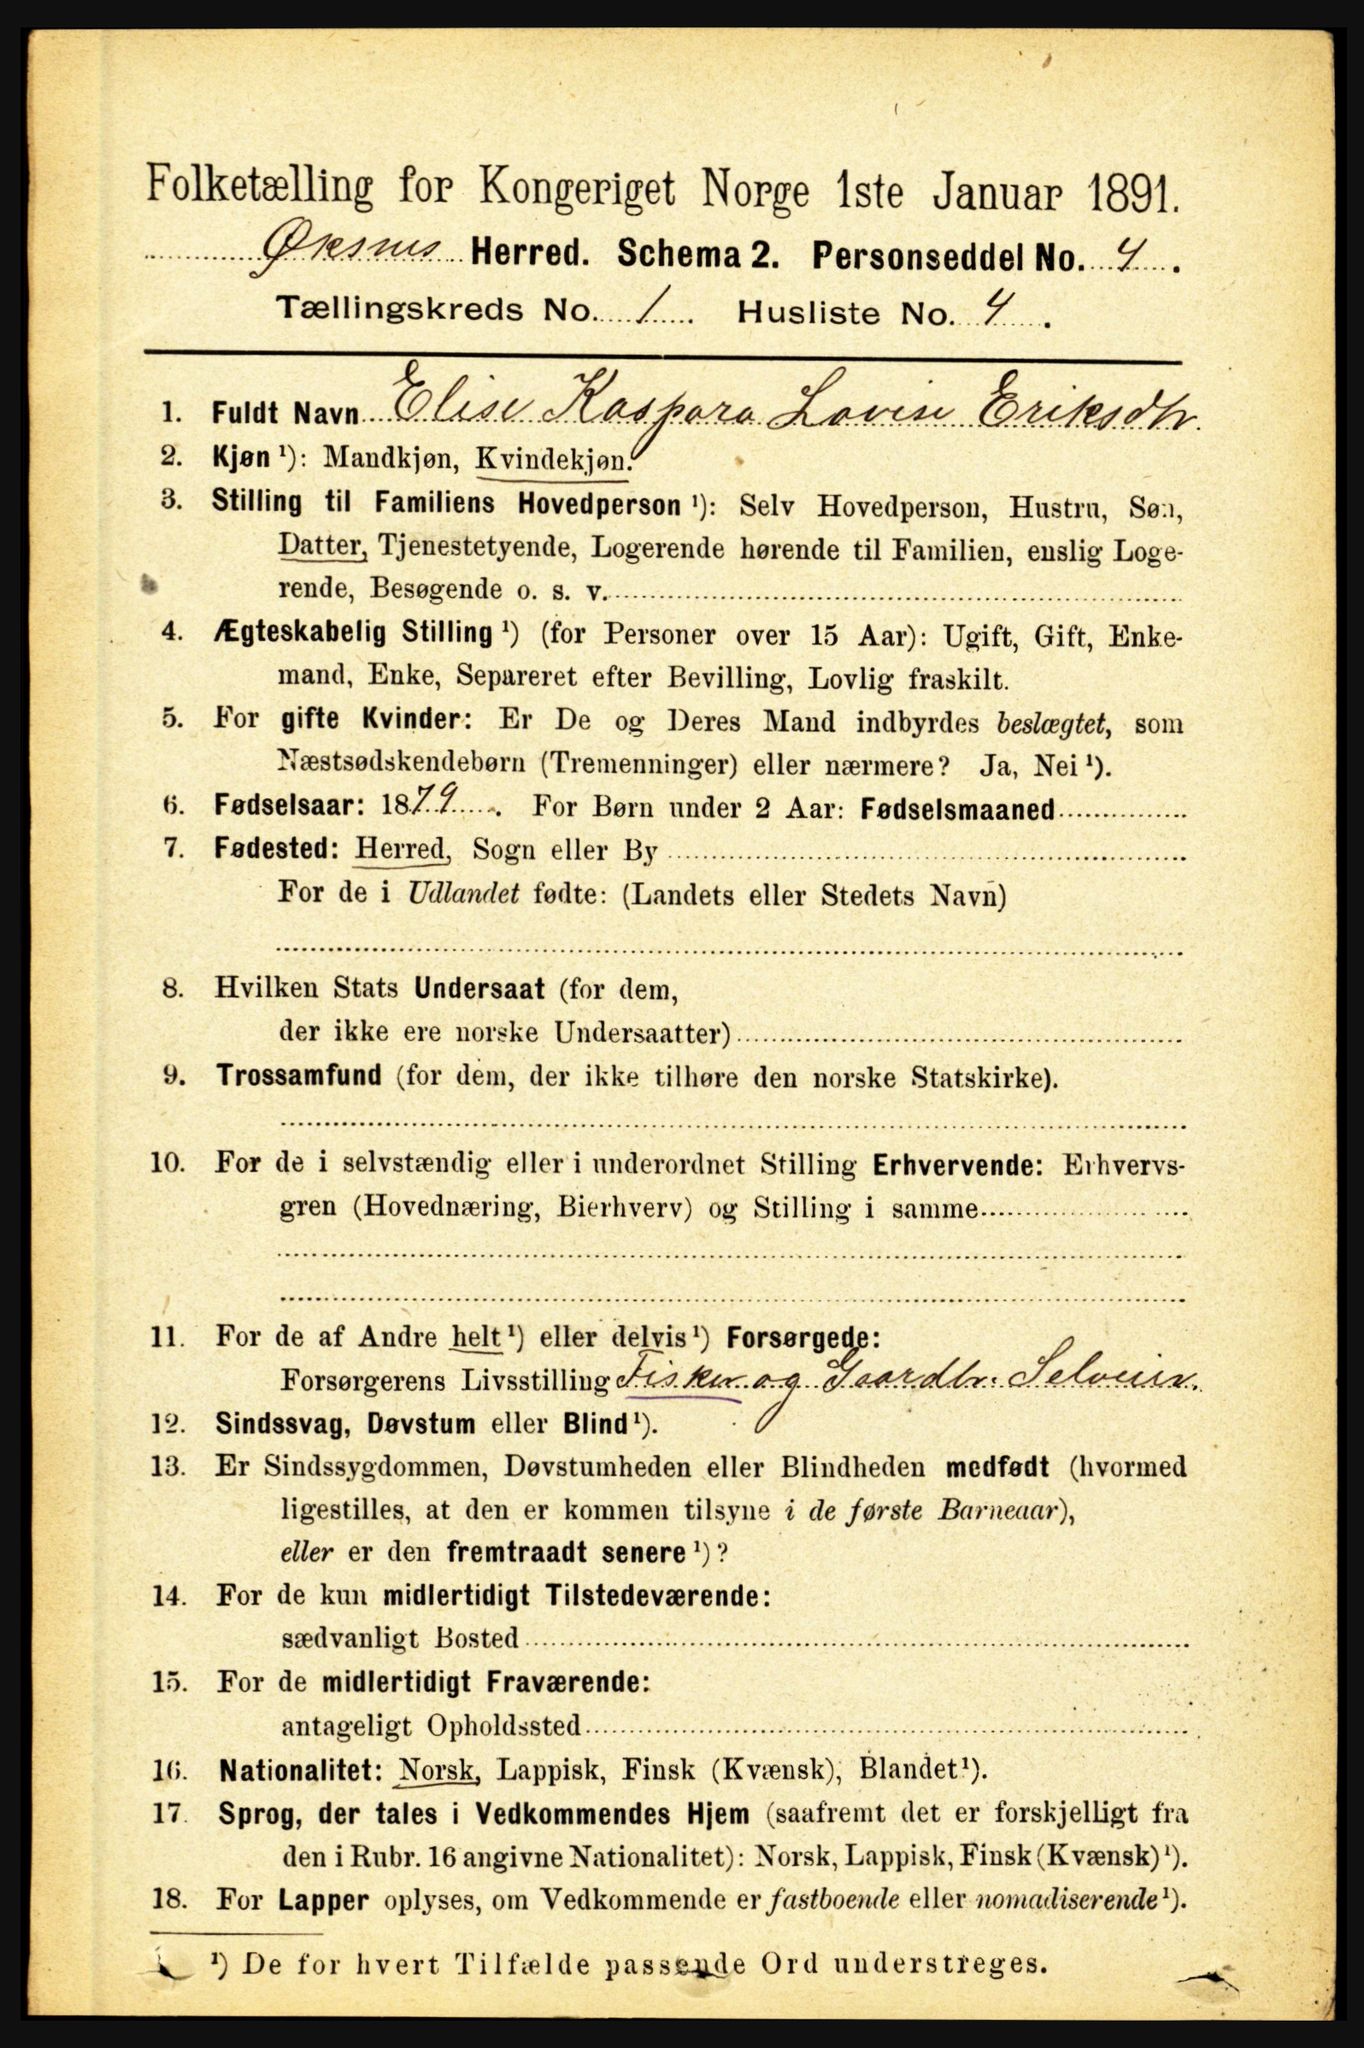 Folketælling for Kongeriget Norge 1ste Januar 1891.
Øksnes Herred. Schema 2. Personseddel No. 4.
Tællingskreds No. 1. Husliste No. 4.
1. Fuldt Navn Elise Kaspara Lovise Eriksdtr
2. Kjøn ¹): Mandkjøn, Kvindekjøn.
3. Stilling til Familiens Hovedperson ¹): Selv Hovedperson, Hustru, Søn,
Datter, Tjenestetyende, Logerende hørende til Familien, enslig Loge-
rende, Besøgende o. s. v.
4. Ægteskabelig Stilling ¹) (for Personer over 15 Aar): Ugift, Gift, Enke-
mand, Enke, Separeret efter Bevilling, Lovlig fraskilt.
5. For gifte Kvinder: Er De og Deres Mand indbyrdes beslægtet, som
Næstsødskendebørn (Tremenninger) eller nærmere? Ja, Nei ¹).
6. Fødselsaar: 1879. For Børn under 2 Aar: Fødselsmaaned
7. Fødested: Herred, Sogn eller By
For de i Udlandet fødte: (Landets eller Stedets Navn)
8. Hvilken Stats Undersaat (for dem,
der ikke ere norske Undersaatter)
9. Trossamfund (for dem, der ikke tilhøre den norske Statskirke).
10. For de i selvstændig eller i underordnet Stilling Erhvervende: Erhvervs-
gren (Hovednæring, Bierhverv) og Stilling i samme
11. For de af Andre helt ¹) eller delvis ¹) Forsørgede:
Forsørgerens Livsstilling Fisker og Gaardbr. Selveier.
12. Sindssvag, Døvstum eller Blind ¹).
13. Er Sindssygdommen, Døvstumheden eller Blindheden medfødt (hvormed
ligestilles, at den er kommen tilsyne i de første Barneaar),
eller er den fremtraadt senere ¹)?
14. For de kun midlertidigt Tilstedeværende:
sædvanligt Bosted
15. For de midlertidigt Fraværende:
antageligt Opholdssted
16. Nationalitet: Norsk, Lappisk, Finsk (Kvænsk), Blandet ¹).
17. Sprog, der tales i Vedkommendes Hjem (saafremt det er forskjelligt fra
den i Rubr. 16 angivne Nationalitet): Norsk, Lappisk, Finsk (Kvænsk) ¹).
18. For Lapper oplyses, om Vedkommende er fastboende eller nomadiserende ¹).
¹) De for hvert Tilfælde passende Ord understreges.